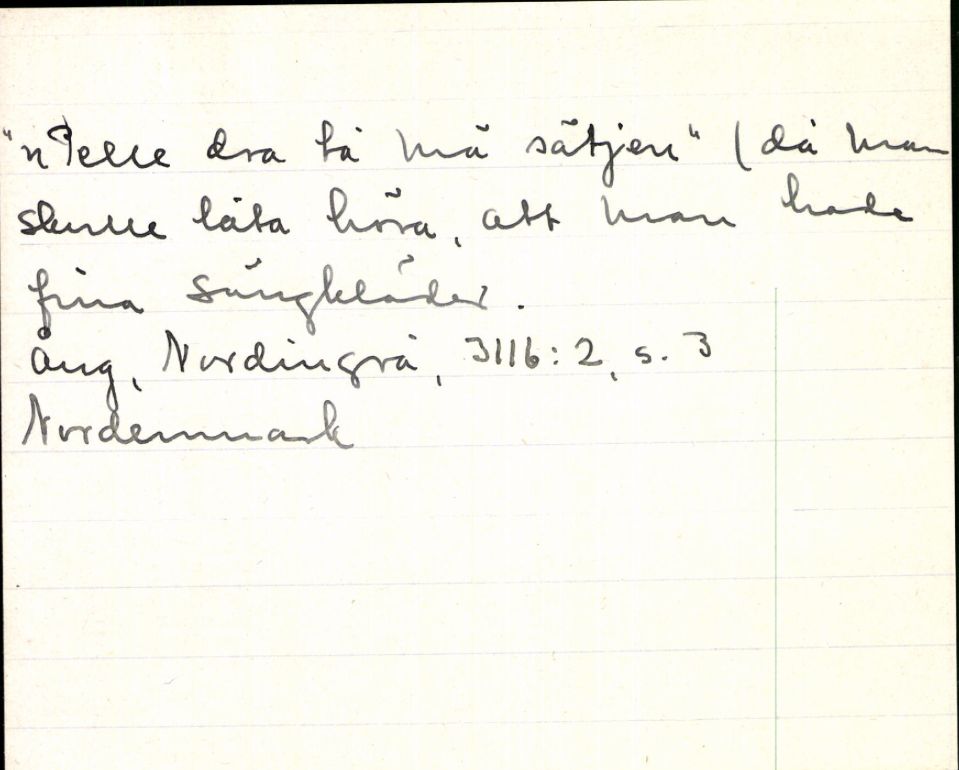 "n Pelle dra tå mä sätjen" (då man
skulle låta höra, att man hade
fina sängkläder.
Ång, Nordingrå, 3116:2, s. 3
Nordenmark